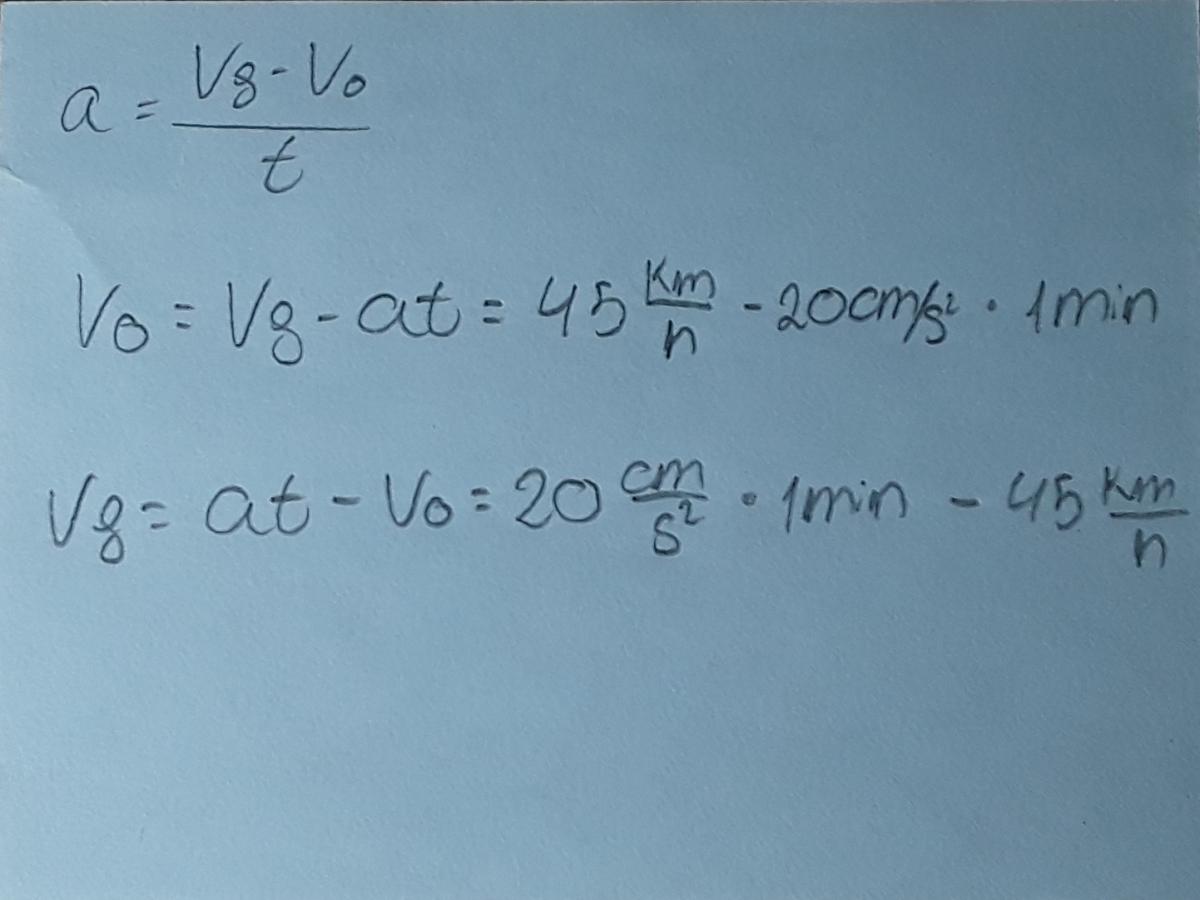 a = (Vg - Vo) / t
Vo = Vg - at = 45 km/h - 20 cm/s² · 1 min
Vg = at - Vo = 20 cm/s² · 1 min - 45 km/h